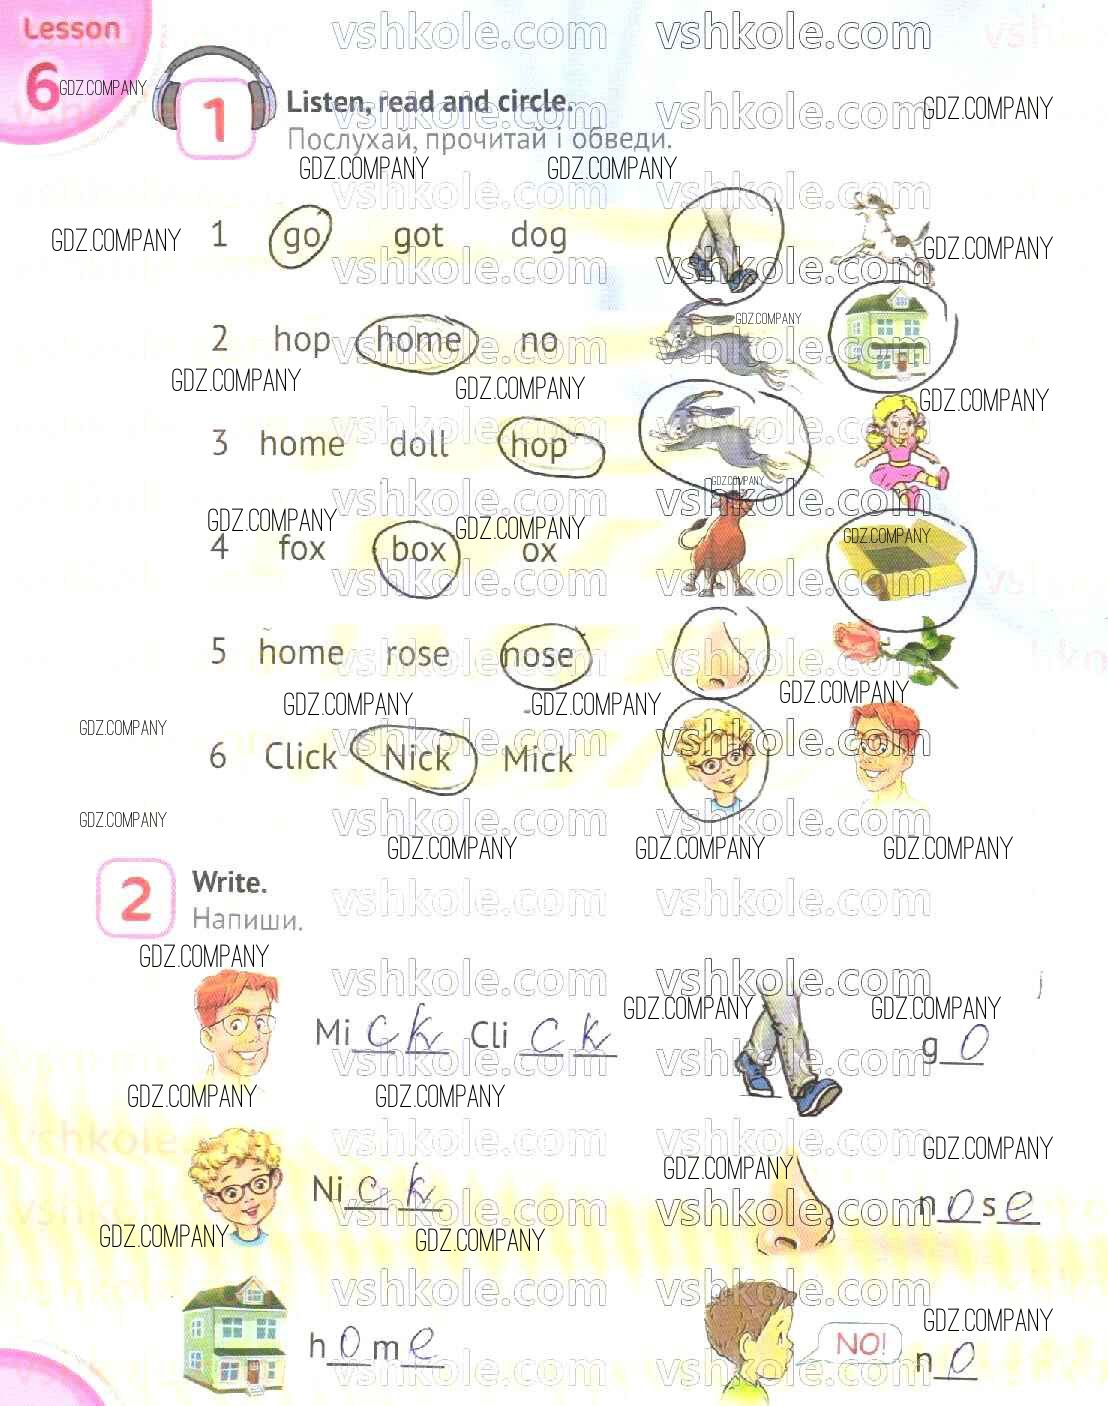 Lesson
6
1 Listen, read and circle.
Послухай, прочитай і обведи.
1 go got dog
2 hop home no
3 home doll hop
4 fox box ox
5 home rose nose
6 Click Nick Mick
2 Write.
Напиши.
Mick Click go
Nick nose
home NO! no
vshkole.com
GDZ.COMPANY